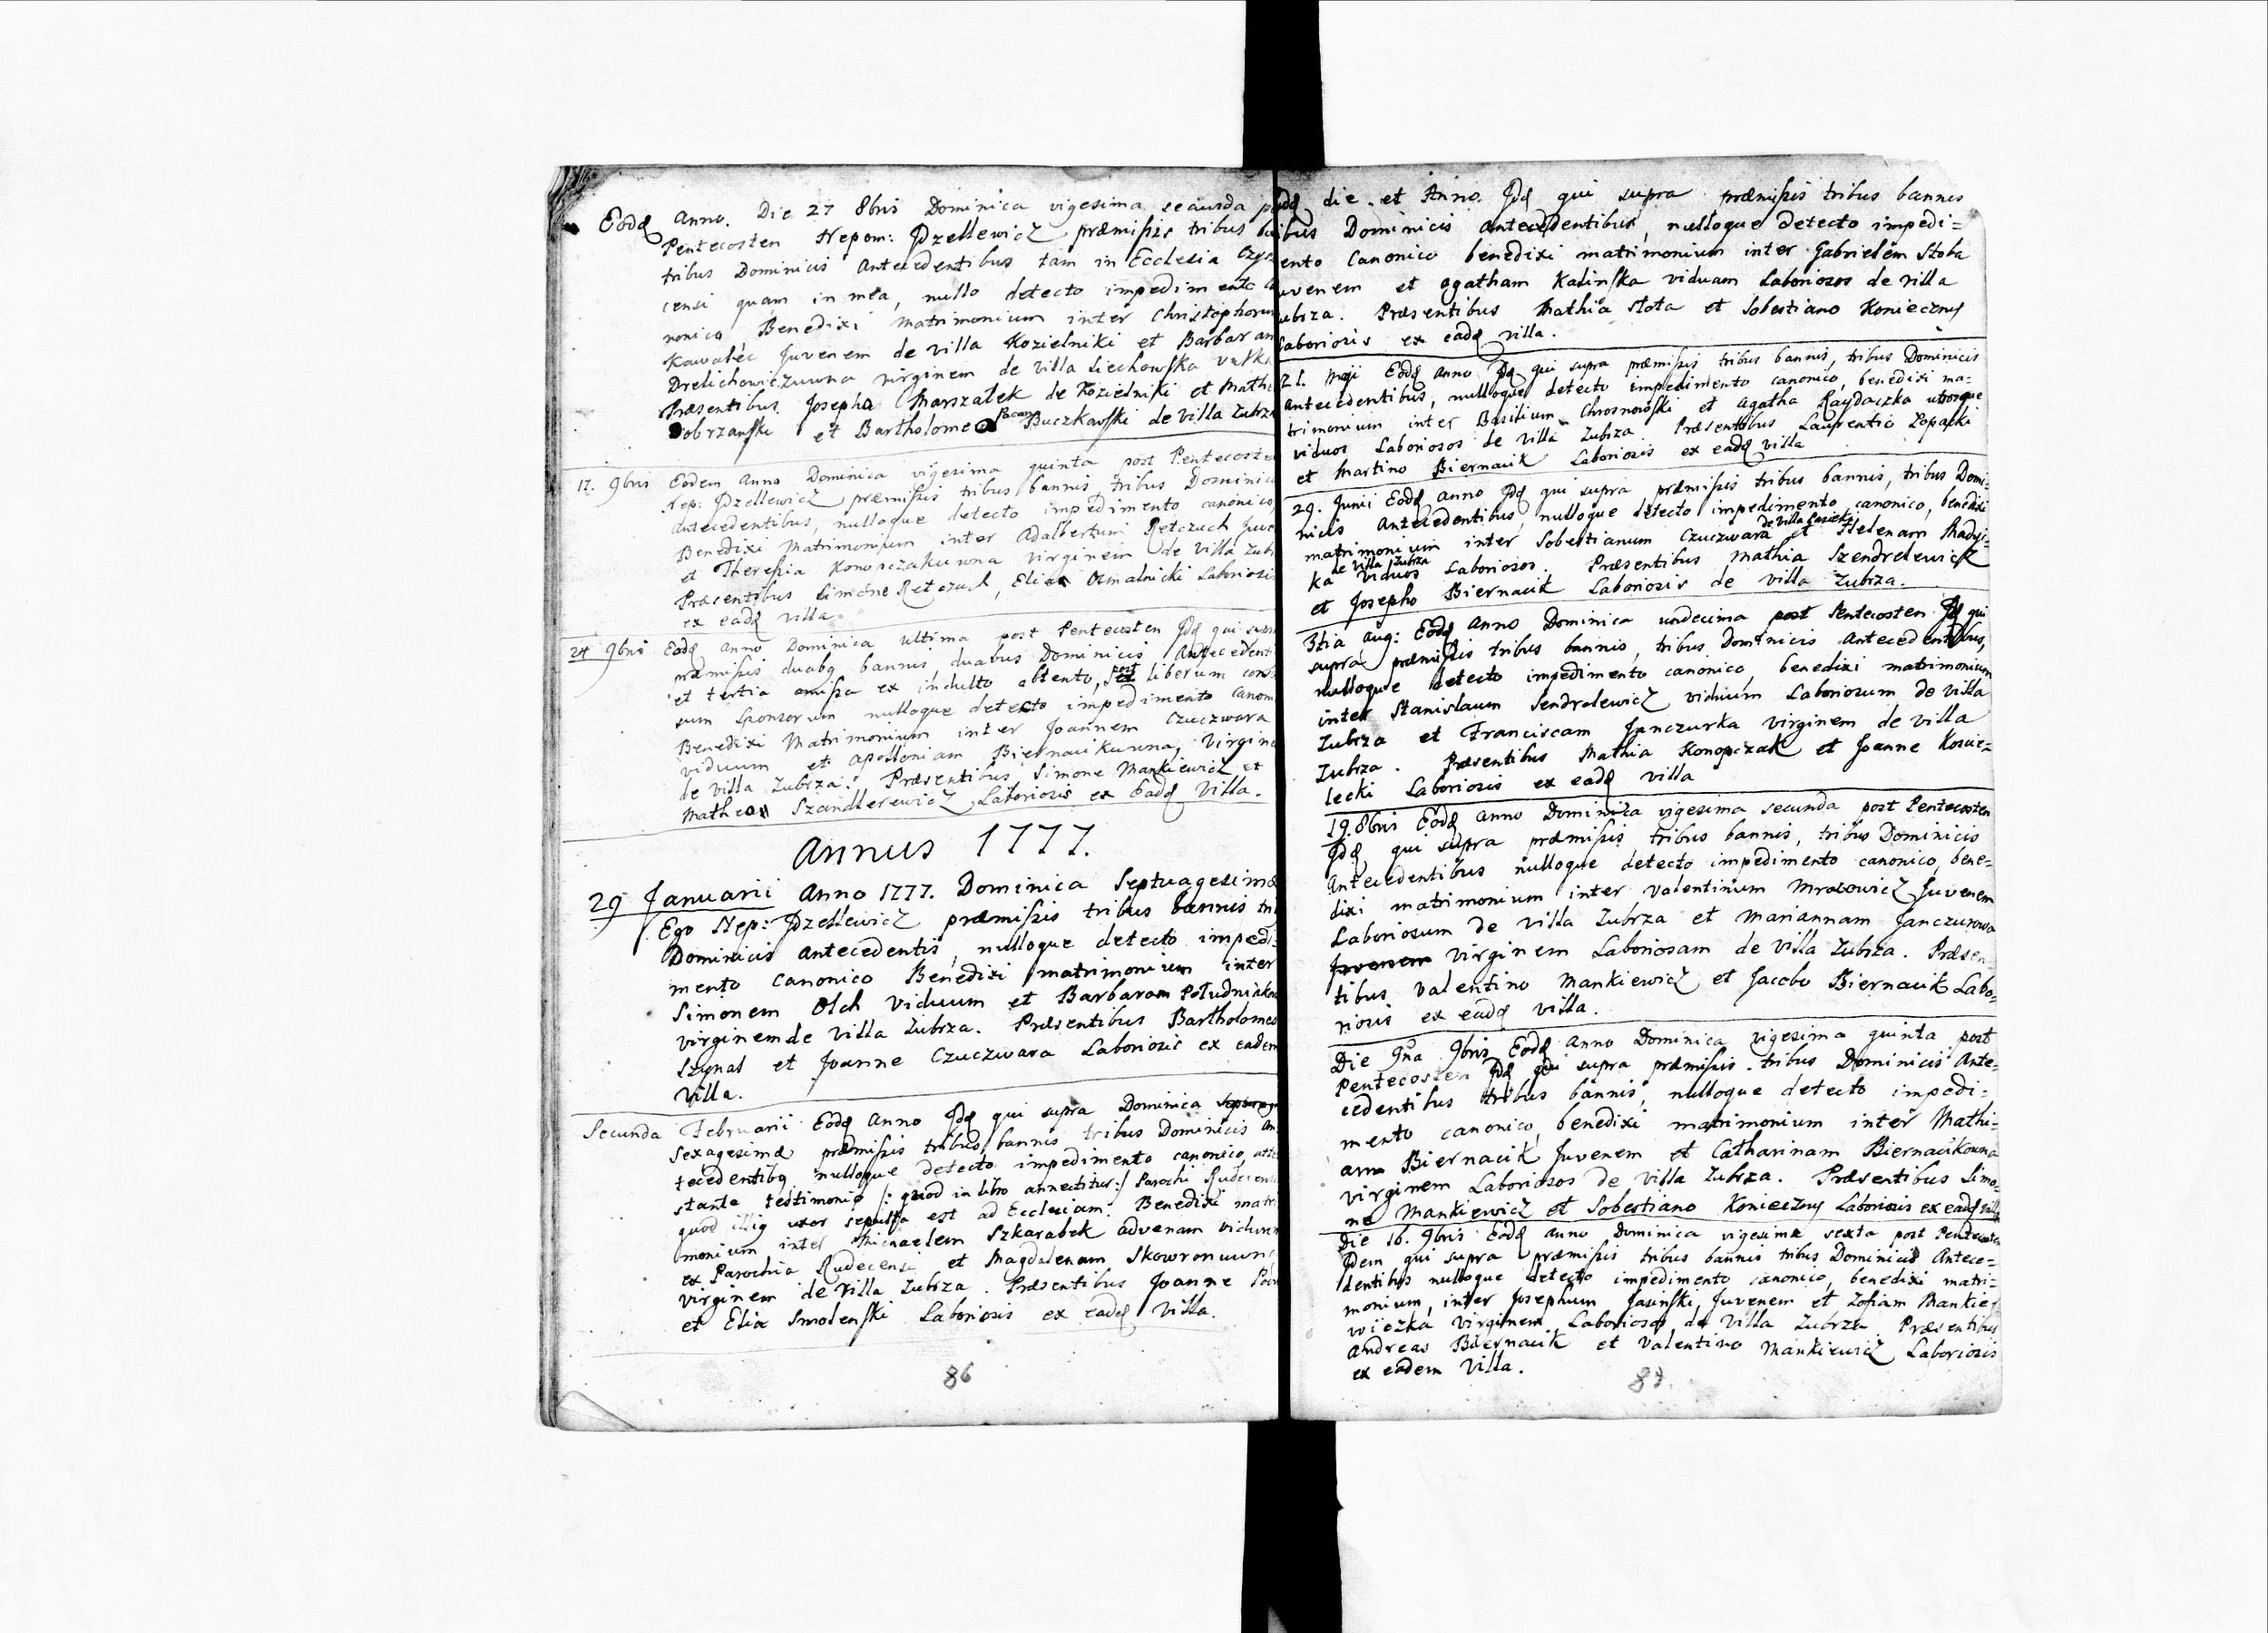 Eodq anno. Die 27 8bris Dominica vigesima secunda
Pentecosten Nepom: Jdzellewicz præmissis tribus
tribus Dominicis Antecedentibus tam in Ecclesia
censi quam in mea, nullo detecto impedimento
nonico, Benedixi Matrimonium inter Christophorum
Kawalec Juvenem de villa Kozielniki et Barbaram
Drelichowiczuwna virginem de villa
Præsentibus Josepho Marszalek de Kozielniki et
Dobrzanski et Bartholomeo Buczkowski de villa
17. 9bris Eodem Anno Dominica vigesima quinta post
Nep: Jdzellewicz præmissis tribus bannis tribus
antecedentibus, nulloque detecto impedimento canonico
Benedixi Matrimonium inter Adalbertum Retczuch
et Theresia Konopczakuwna virginem de villa
Præsentibus Simone Retczuch, Elia Osmalnicki
ex eadq villa.
24 9bris Eodq anno Dominica ultima post Pentecosten Jdq qui
præmissis duabq bannis duabus Dominicis
et tertia omissa ex indulto obtento, post liberum
sum sponsorum nulloque detecto impedimento
Benedixi Matrimonium inter Joannem Czuczwara
viduum et Apolloniam Biernacikuwna,
de villa Zubrza. Præsentibus Simone Mankiewicz et
Szandlerewicz Laboriosis ex Eadq villa.
Annus 1777.
29 Januarii Anno 1777. Dominica Septuagesimæ
Ego Nep: Jdzellewicz præmissis tribus bannis
Dominicis antecedentis, nulloque detecto impedi-
mento canonico Benedixi matrimonium inter
Simonem Olch viduum et Barbaram
virginem de villa Zubrza. Præsentibus Bartholomeo
Szynal et Joanne Czuczwara Laboriosis ex eadem
villa.
Secunda Februarii Eodq anno Jdq qui supra Dominica
Sexagesimæ præmissis tribus bannis tribus Dominicis
tecedentibq nulloque detecto impedimento canonico,
stante testimonio /: quod in libro annectitur :/ Parochi
quod illiq uxor sepulta est ad Ecclesiam. Benedixi
monium inter Michaelem Szkarabek advenam
ex Parochia Rudecensi et Magdalenam
virginem de villa Zubrza. Præsentibus Joanne
et Elia Smolenski Laboriosis ex eadq villa.
86
die et Anno. Jdq qui supra præmissis tribus bannis
Dominicis antecedentibus, nulloque detecto impedi=
Canonico benedixi matrimonium inter Gabrielem Stoba
et Agatham Kalinska viduam Laboriosos de villa
Præsentibus Mathia Slota et Sobestiano Konieczny
Laboriosis ex eadq villa.
21. Maji Eodq anno Jdq qui supra præmissis tribus bannis, tribus Dominicis
Antecedentibus, nulloque detecto impedimento canonico, benedixi ma=
trimonium inter Basilium Chrosnowski et Agatha Raydaczka utosque
viduos Laboriosos de villa Zubrza. Præsentibus Laurentio Lopacki
et Martino Biernacik Laboriosis ex eadq villa
29. Junii Eodq anno Jdq qui supra, præmissis tribus bannis, tribus Domi=
nicis Antecedentibus, nulloque detecto impedimento canonico, benedixi
matrimonium inter Sobestianum Czuczwara de villa et Helenam
ka de villa Zubrza viduos Laboriosos. Præsentibus Mathia Szendrelewicz
et Josepho Biernacik Laboriosis de villa Zubrza.
3tia Aug: Eodq anno Dominica undecima post Pentecosten Jdq qui
supra præmissis tribus bannis, tribus Dominicis Antecedentibus,
nulloque detecto impedimento canonico, benedixi matrimonium
inter Stanislaum Sendrelewicz viduum Laboriosum de villa
Zubrza et Franciscam Janczurka virginem de villa
Zubrza. Præsentibus Mathia Konopczak et Joanne Koscie=
lecki Laboriosis ex eadq villa
19. 8bris Eodq anno Dominica vigesima secunda post Pentecosten
Jdq qui supra præmissis tribus bannis, tribus Dominicis
Antecedentibus nulloque detecto impedimento canonico, bene=
dixi matrimonium inter Valentinum Mrozowicz Juvenem
Laboriosum de villa Zubrza et Mariannam
Juvenem virginem Laboriosam de villa Zubrza. Præsen
tibus Valentino Mankiewicz et Jacobo Biernacik Labo=
riosis ex eadq villa.
Die 9na 9bris Eodq anno Dominica vigesima quinta post
Pentecosten Jdq qui supra præmissis tribus Dominicis Ante=
cedentibus tribus bannis, nulloque detecto impedi=
mento canonico, benedixi matrimonium inter Mathi=
am Biernacik Juvenem et Catharinam Biernacikowna
virginem Laboriosos de villa Zubrza. Præsentibus Simo=
ne Mankiewicz et Sobestiano Konieczny Laboriosis ex eadq villa
Die 16. 9bris Eodq anno Dominica vigesima sexta post Pentecosten
Jdem qui supra præmissis tribus bannis tribus Dominicis Antece=
dentibus nulloque detecto impedimento canonico, benedixi matri=
monium, inter Josephum Jasinski, Juvenem et Zofiam Mankie
wiczka virginem, Laboriosos de villa Zubrza. Præsentibus
Andreas Biernacik et Valentino Mankiewicz Laboriosis
ex eadem villa.